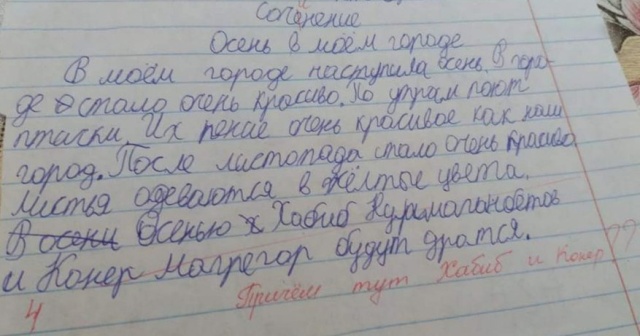 Сочинение
Осень в моём городе
В моём городе наступила осень. В горо-
де стало очень красиво. По утрам поют
птички. Их пение очень красивое как наш
город. После листопада стало очень красиво.
Листья одеваются в жёлтые цвета.
В осени Осенью Хабиб Нурмагомедов
и Конер Магрегор будут дратся.
4 Причём тут Хабиб и Конер ??